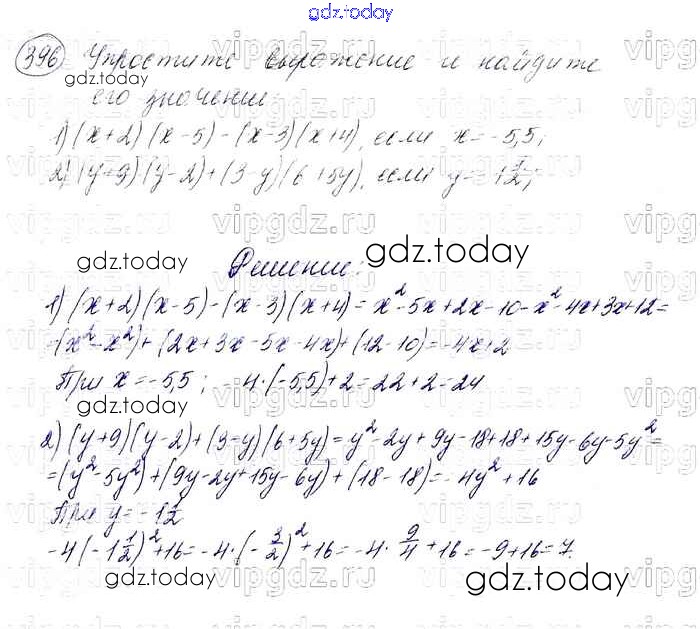 gdz.today
396 Упростите выражение и найдите
его значение:
1) (x+2)(x-5)-(x-3)(x+4), если x=-5,5;
2) (y+9)(y-2)+(3-y)(6+5y), если y=-1 1/2;
Решение:
1) (x+2)(x-5)-(x-3)(x+4)=x²-5x+2x-10-x²-4x+3x+12=
=(x²-x²)+(2x+3x-5x-4x)+(12-10)=-4x+2
При x=-5,5; -4·(-5,5)+2=22+2=24
2) (y+9)(y-2)+(3-y)(6+5y)=y²-2y+9y-18+18+15y-6y-5y²=
=(y²-5y²)+(9y-2y+15y-6y)+(18-18)=-4y²+16
При y=-1 1/2
-4(-1 1/2)²+16=-4·(-3/2)²+16=-4·9/4+16=-9+16=7.
gdz.today
gdz.today
gdz.today
gdz.today
gdz.today
gdz.today
vipgdz.ru